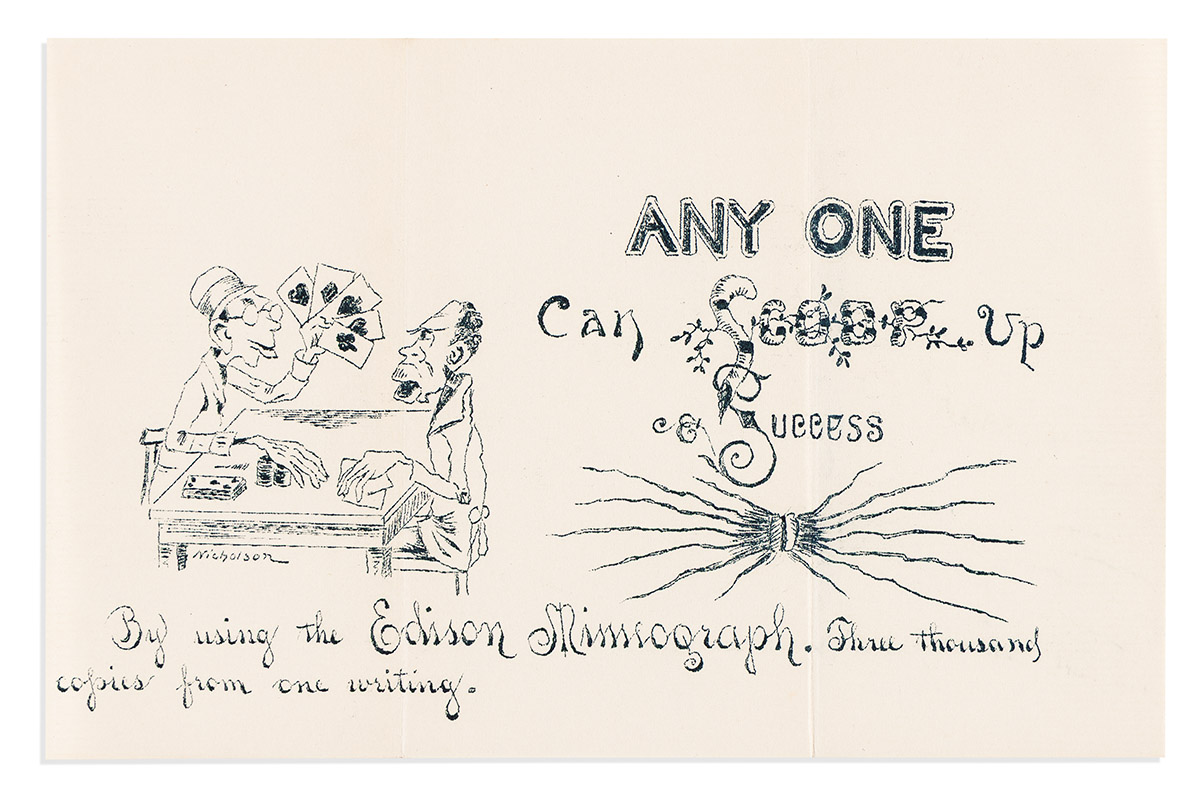 ANY ONE
Can SCOOP Up
SUCCESS
Nicholson
By using the Edison Mimeograph. Three thousand
copies from one writing.